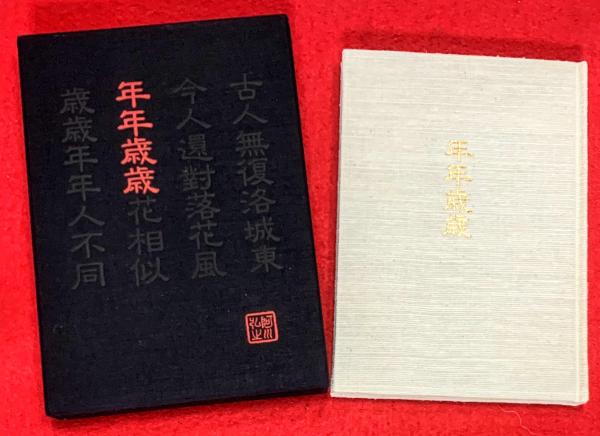 古人無復洛城東
今人還對落花風
年年歳歳花相似
歳歳年年人不同
阿川弘之
年年歳歳